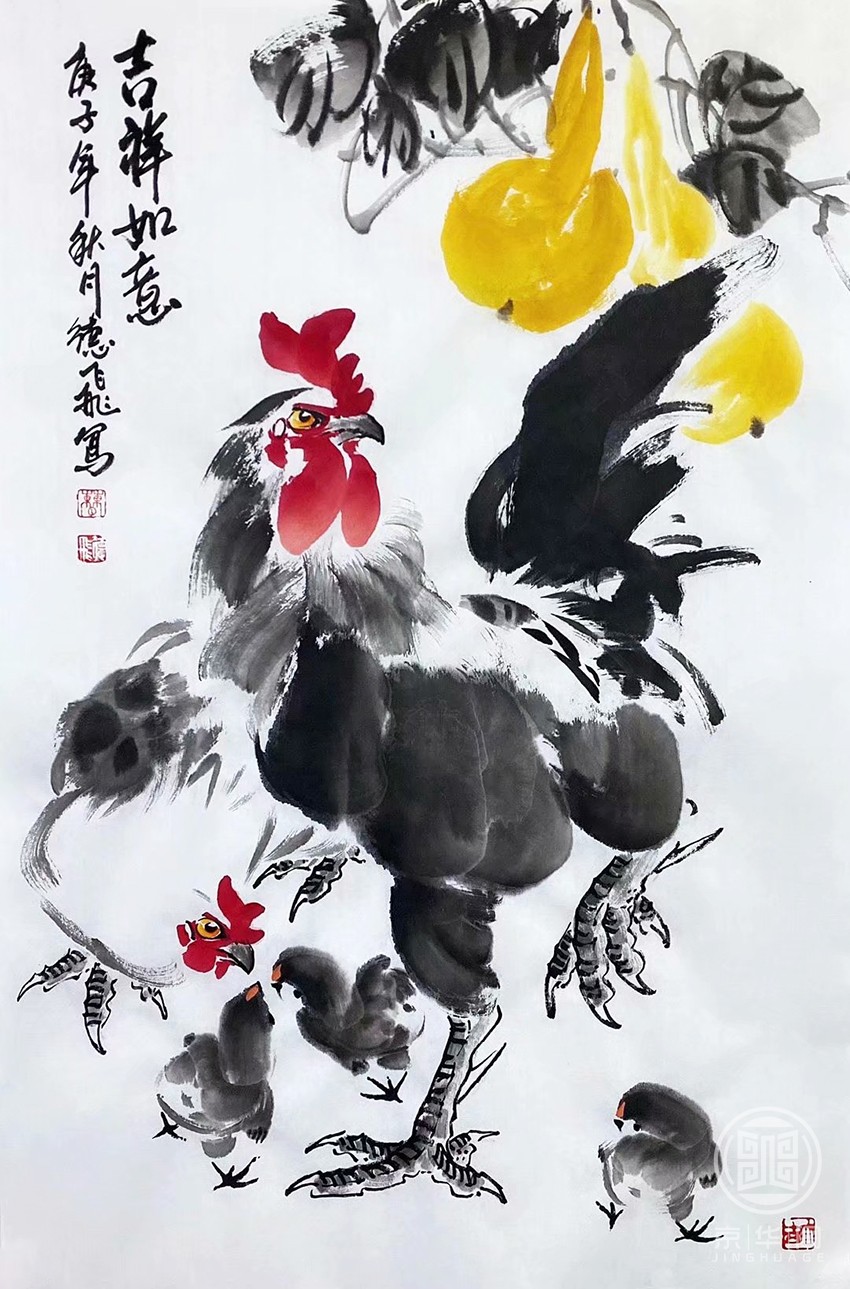 吉祥如意
庚子年秋月德飛寫
京华阁
JINGHUAGE